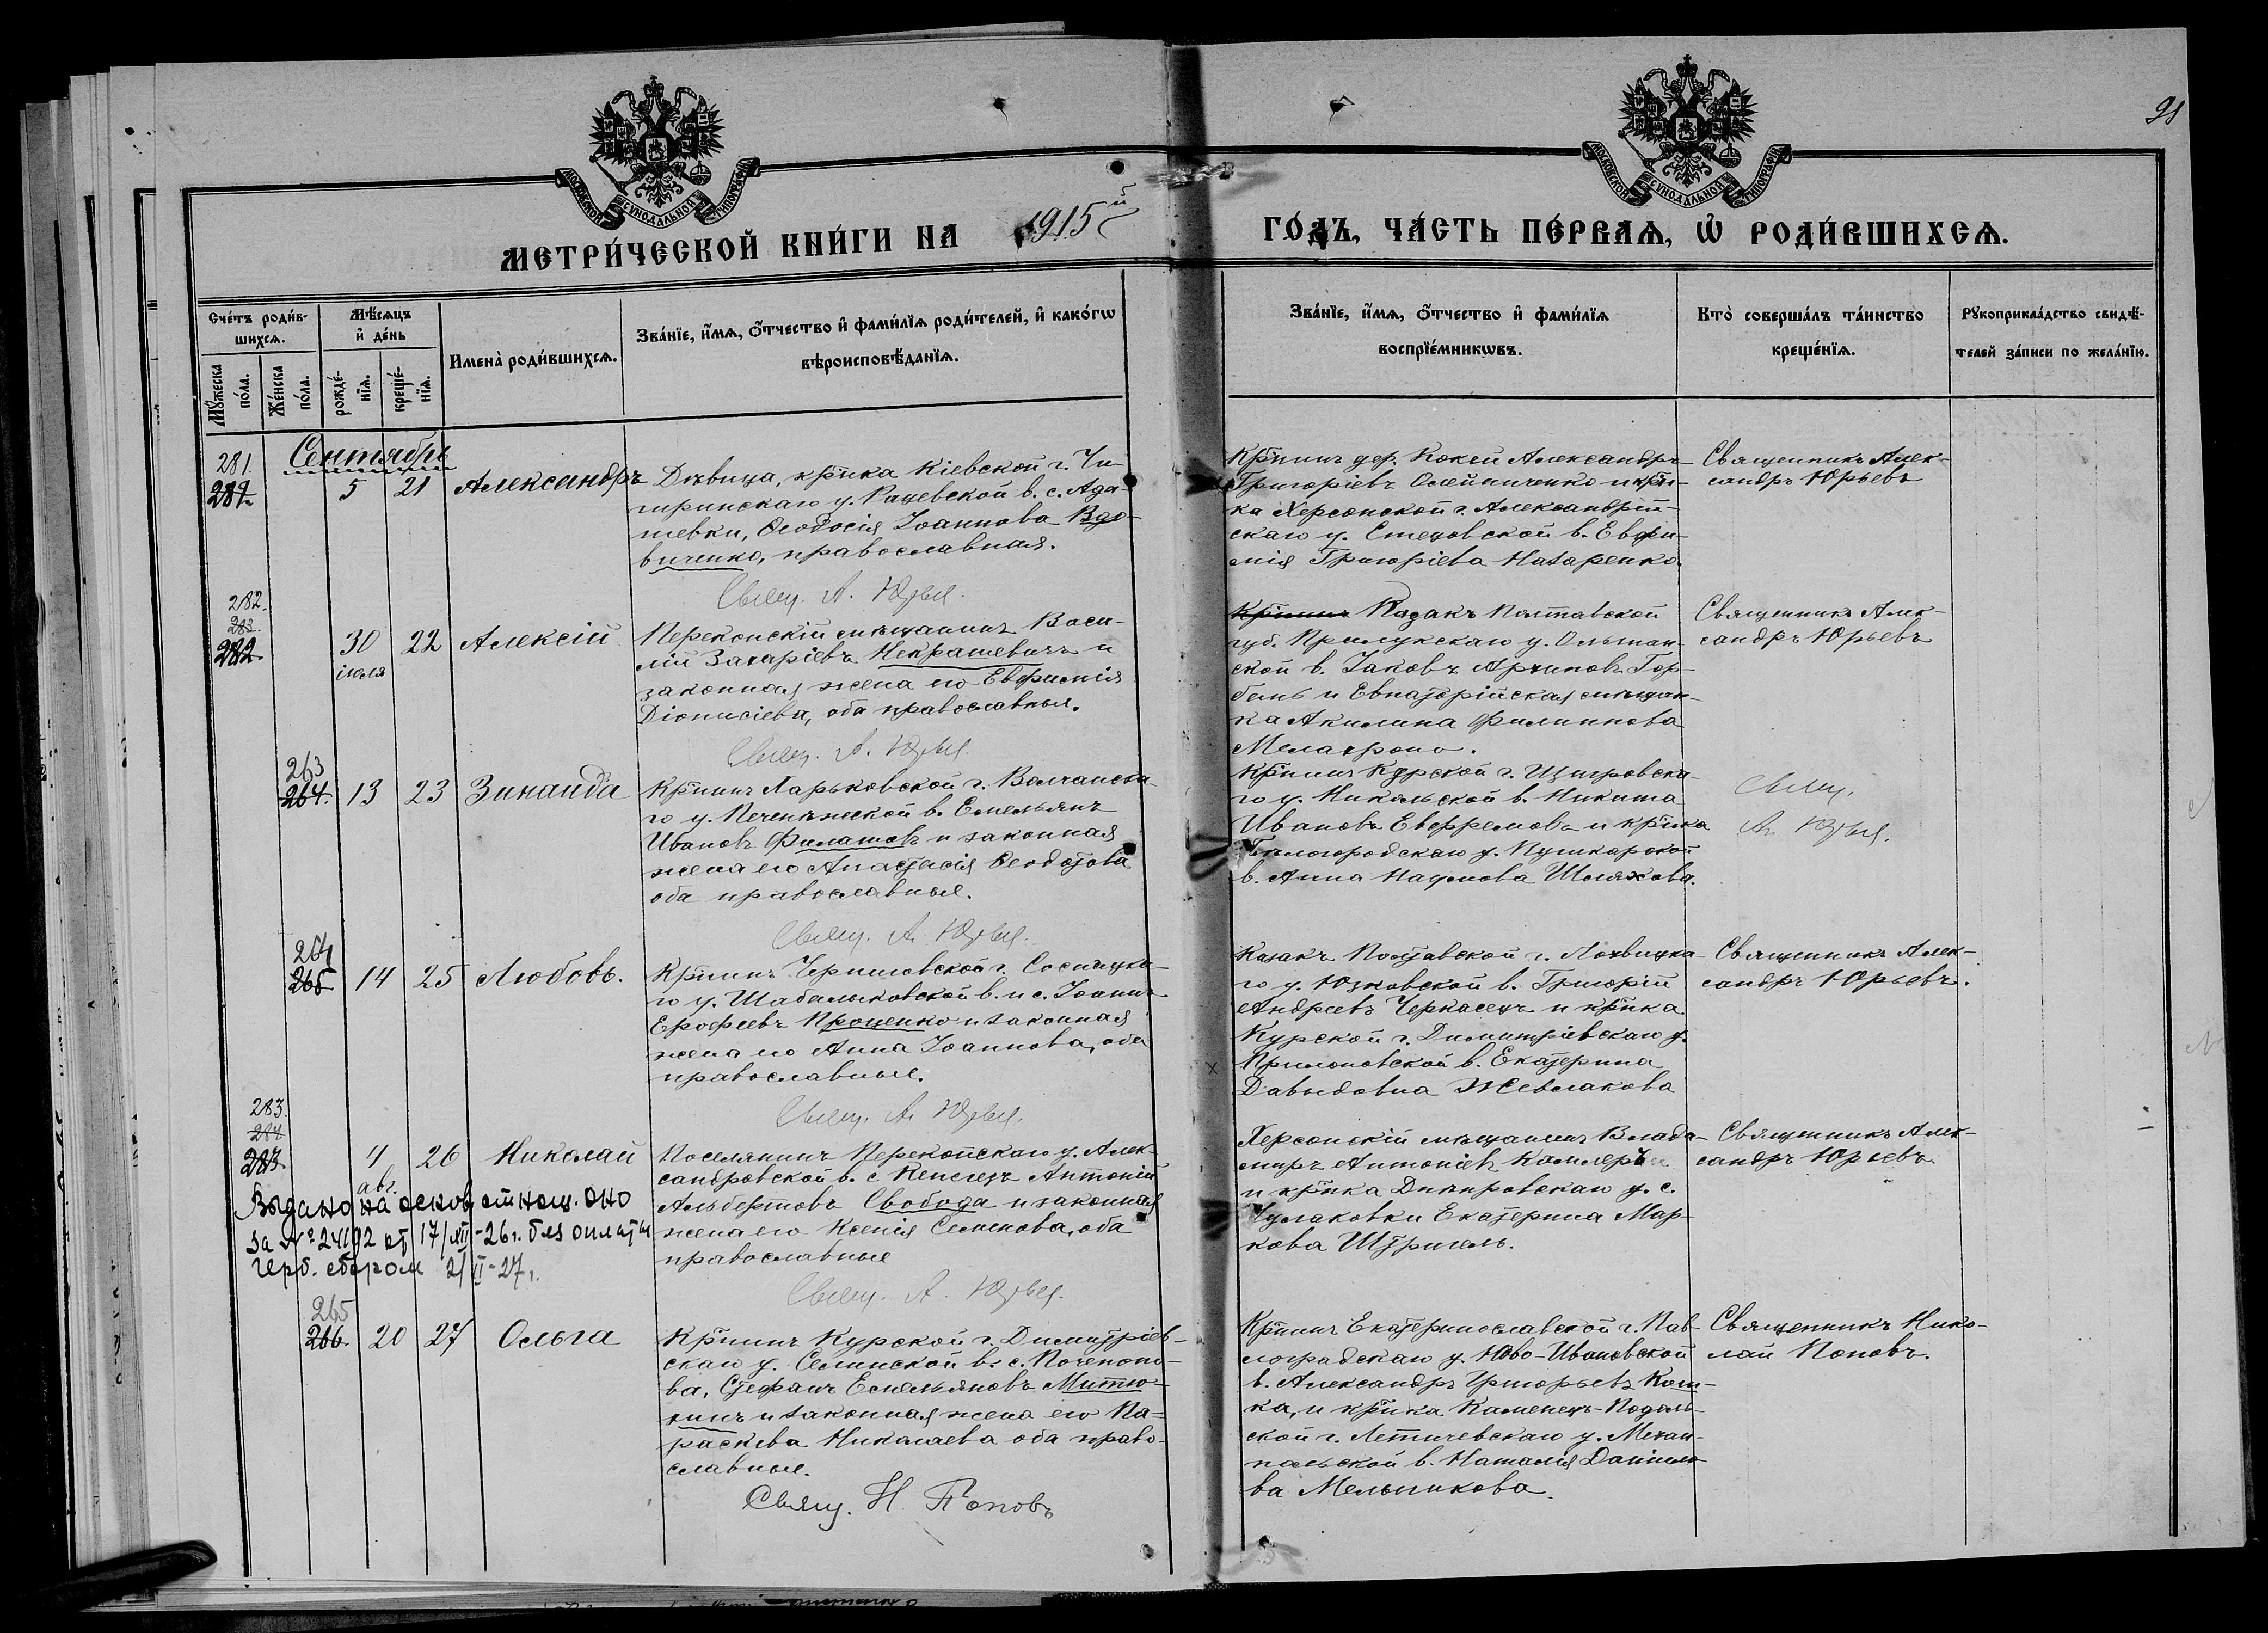 91
МОСКОВСКОЙ СУНОДАЛЬНОЙ ТИПОГРАФІИ
МОСКОВСКОЙ СУНОДАЛЬНОЙ ТИПОГРАФІИ
МЕТРИ́ЧЕСКОЙ КНИ́ГИ НА 1915й ГО́ДЪ, ЧА́СТЬ ПЕ́РВАѦ, Ѡ҆ РОДИ́ВШИХСѦ.
Сче́тъ роди́в-
шихсѧ.
Мꙋ́жеска
по́ла.
Же́нска
по́ла.
Мѣ́сѧцъ
и҆ де́нь
рожде́-
нїѧ.
креще́-
нїѧ.
Имена̀ роди́вшихсѧ.
Зва́нїе, и҆́мѧ, ѻ҆́тчество и҆ фами́лїѧ роди́телей, и҆ како́гѡ
вѣроисповѣ́данїѧ.
Зва́нїе, и҆́мѧ, ѻ҆́тчество и҆ фами́лїѧ
воспрїе́мникѡвъ.
Кто̀ соверша́лъ та́инство
креще́нїѧ.
Рꙋкоприкла́дство свидѣ́-
телей за́писи по жела́нїю.
Сентябрь
281.
5 21 Александръ
Дѣвица, кр̄нка Кіевской г. Чи-
гиринскаго у. Рацевской в. с. Ада-
мевки, Ѳеодосія Іоаннова Вдо-
виченко, православная.
Свящ. А. Юрьев.
Кр̄нинъ дер. Кокеи Александръ
Григоріевъ Олейниченко и кр̄н-
ка Херсонской г. Александрій-
скаго у. Стецовской в. Евфи-
мія Григоріева Назаренко.
Священникъ Алек-
сандръ Юрьевъ
282.
283.
282
30 22 Алексій
іюля
Перекопскій мѣщанинъ Васи-
лій Захаріевъ Некрашевичъ и
законная жена его Евфимія
Діонисіева, оба православные.
Свящ. А. Юрьев.
Кр̄нинъ Казакъ Полтавской
губ. Прилукскаго у. Ольшан-
ской в. Іаковъ Архиповъ Гор-
бань и Евпаторійская мѣщан-
ка Акилина Филиппова
Мелахропо.
Священникъ Алек-
сандръ Юрьевъ
263
264.
13 23 Зинаида
Кр̄нинъ Харьковской г. Волчанска-
го у. Печенѣжской в. Емельянъ
Ивановъ Филатовъ и законная
жена его Анастасія Ѳеодотова
оба православные.
Свящ. А. Юрьев.
Кр̄нинъ Курской г. Щигровска-
го у. Никольской в. Никита
Ивановъ Евфремовъ и кр̄нка
Бѣлогородскаго у. Пушкарской
в. Анна Наумова Шляхова.
Свящ.
А. Юрьев.
264
265
14 25 Любовь.
Кр̄нинъ Черниговской г. Сосницка-
го у. Шабалыковской в. и с. Іоаннъ
Ерофеевъ Проценко и законная
жена его Анна Іоаннова, оба
православные.
Свящ. А. Юрьев.
Казакъ Полтавской г. Лохвицка-
го у. Юзковской в. Григорій
Андреевъ Черкасецъ и кр̄нка
Курской г. Димитріевскаго у.
Прилеповской в. Екатерина
Давыдовна Жевлакова
Священникъ Алек-
сандръ Юрьевъ.
283.
284
283
4 26 Николай
авг.
Поселянинъ Перекопскаго у. Алек-
сандровской в. с. Кенегезъ Антоній
Альбертовъ Свобода и законная
жена его Ксенія Семенова, оба
православные
Свящ. А. Юрьев.
Херсонскій мѣщанинъ Влади-
миръ Антоніевъ
и кр̄нка Днѣпровскаго у. с.
Чулаковки Екатерина Мар-
кова Штригель.
Священникъ Алек-
сандръ Юрьевъ
Выдано на основ. отнош. ОНО
за № 24192 от 17/XII-26г. без оплаты
герб. сбором 2/II-27г.
265
266.
20 27 Ольга
Кр̄нинъ Курской г. Димитріев-
скаго у. Селинской в. с. Почепно-
ва, Стефанъ Емельяновъ Митю-
хинъ и законная жена его Па-
раскева Николаева оба право-
славные.
Свящ. Н. Поповъ
Кр̄нинъ Екатеринославской г. Пав-
лоградскаго у. Ново-Ивановской
в. Александръ Григорьевъ Кош-
ка, и кр̄нка Каменецъ-Подоль-
ской г. Летичевскаго у. Межи-
польской в. Наталія Даніило-
ва Мельникова.
Священникъ Нико-
лай Поповъ.